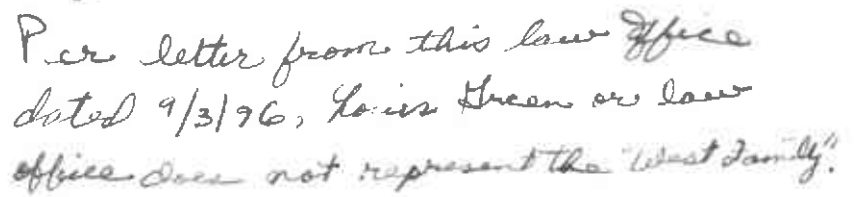 Per letter from this law office
dated 9/3/96, Louis Green or law
office does not represent the "West Family".